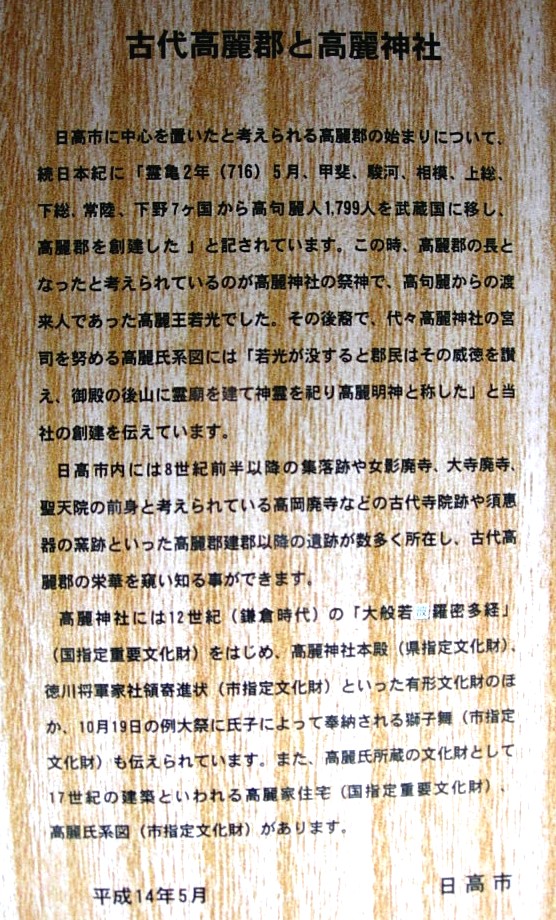 古代高麗郡と高麗神社
日高市に中心を置いたと考えられる高麗郡の始まりについて、
続日本紀に「霊亀2年（716）5月、甲斐、駿河、相模、上総、
下総、常陸、下野7ヶ国から高句麗人1,799人を武蔵国に移し、
高麗郡を創建した」と記されています。この時、高麗郡の長と
なったと考えられているのが高麗神社の祭神で、高句麗からの渡
来人であった高麗王若光でした。その後裔で、代々高麗神社の宮
司を努める高麗氏系図には「若光が没すると郡民はその威徳を讃
え、御殿の後山に霊廟を建て神霊を祀り高麗明神と称した」と当
社の創建を伝えています。
日高市内には8世紀前半以降の集落跡や女影廃寺、大寺廃寺、
聖天院の前身と考えられている高岡廃寺などの古代寺院跡や須恵
器の窯跡といった高麗郡建郡以降の遺跡が数多く所在し、古代高
麗郡の栄華を窺い知る事ができます。
高麗神社には12世紀（鎌倉時代）の「大般若波羅密多経」
（国指定重要文化財）をはじめ、高麗神社本殿（県指定文化財）、
徳川将軍家社領寄進状（市指定文化財）といった有形文化財のほ
か、10月19日の例大祭に氏子によって奉納される獅子舞（市指定
文化財）も伝えられています。また、高麗氏所蔵の文化財として
17世紀の建築といわれる高麗家住宅（国指定重要文化財）、
高麗氏系図（市指定文化財）があります。
平成14年5月
日高市